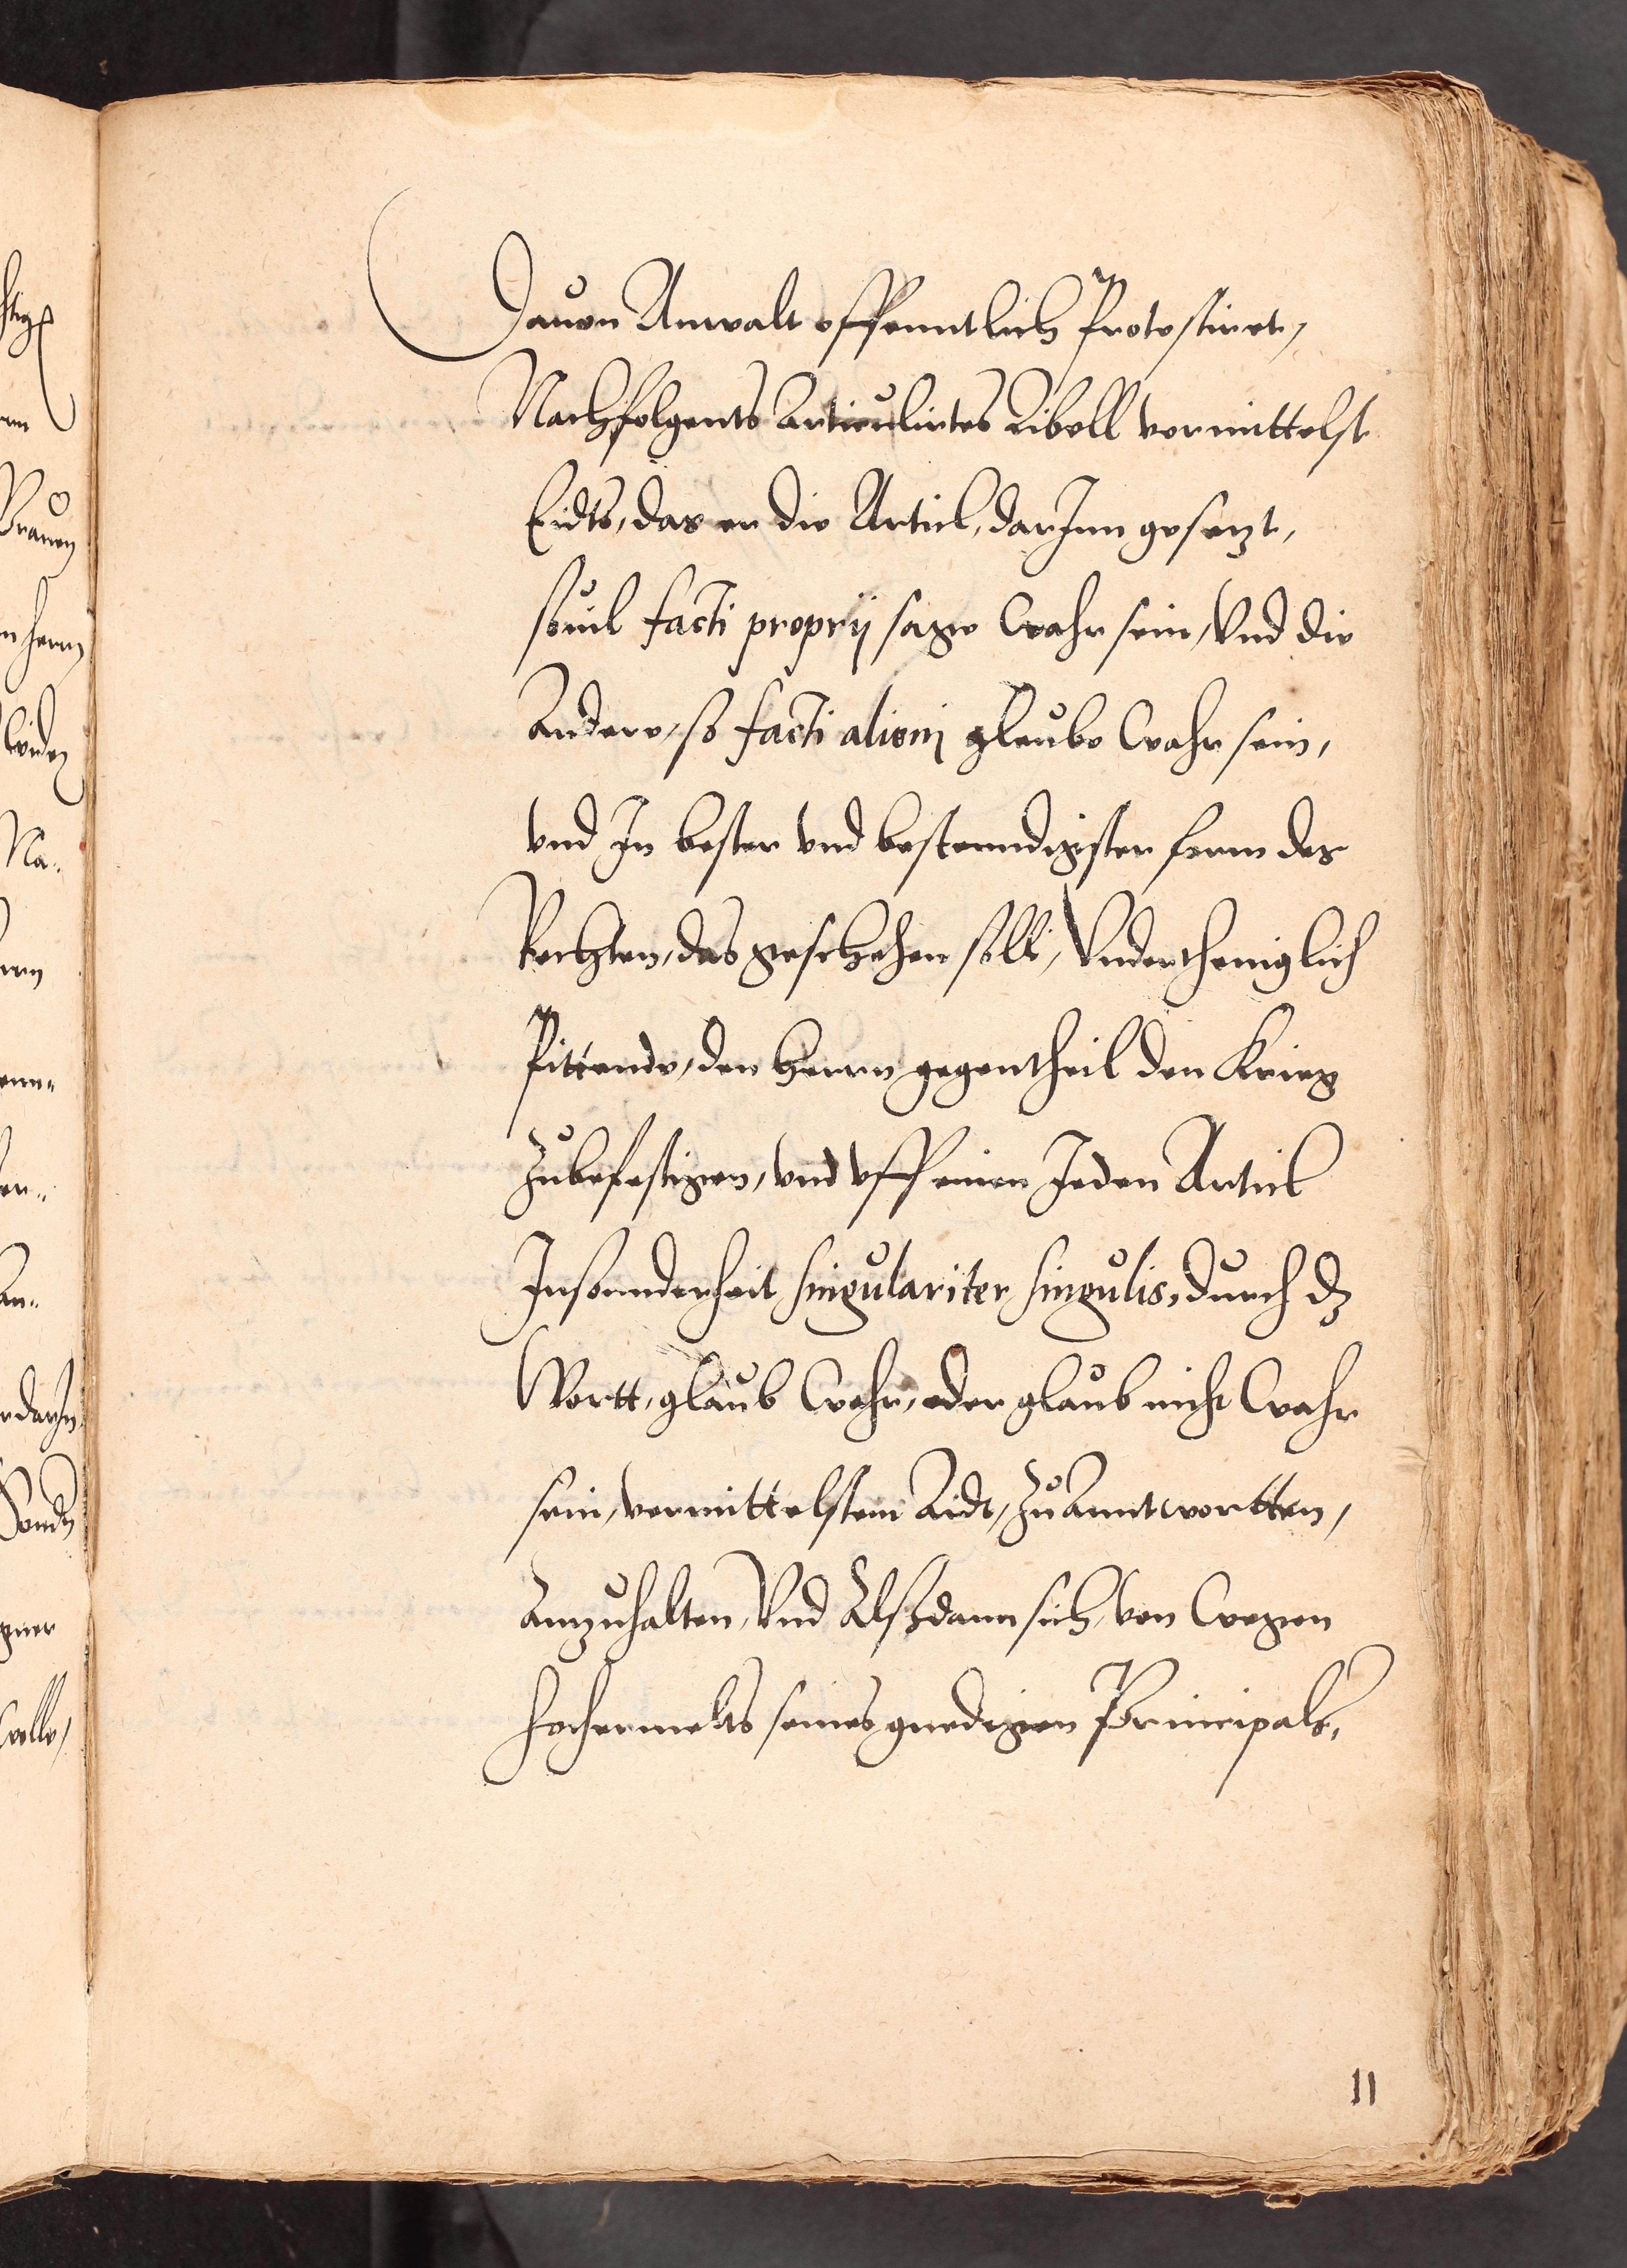 Dauon Anwalt offenntlich Protestiret,
Nachfolgents Articulirtes Libell vermittelst
Eidts, das er die Articl, darJnn gesezt,
souil facti proprij sage Wahr sein, Vnd die
Andere, so facti alieni glaube Wahr sein,
vnd Jn bester vnd bestenndigister form des
Rechten, das geschehen soll, Vndertheniglich
Pittende, den Herrn gegentheil den Krieg
zubefestigen, vnd vff einen Jeden Articl
Jnsonnderheit singulariter singulis, durch dz
Wortt, glaub Wahr, oder glaub nicht Wahr
sein, vermittelstem Aidt, zu Anntwortten,
Anzuhalten, Vnd Alßdann sich, von Wegen
hochermelts seines gnedigen Principals,
11